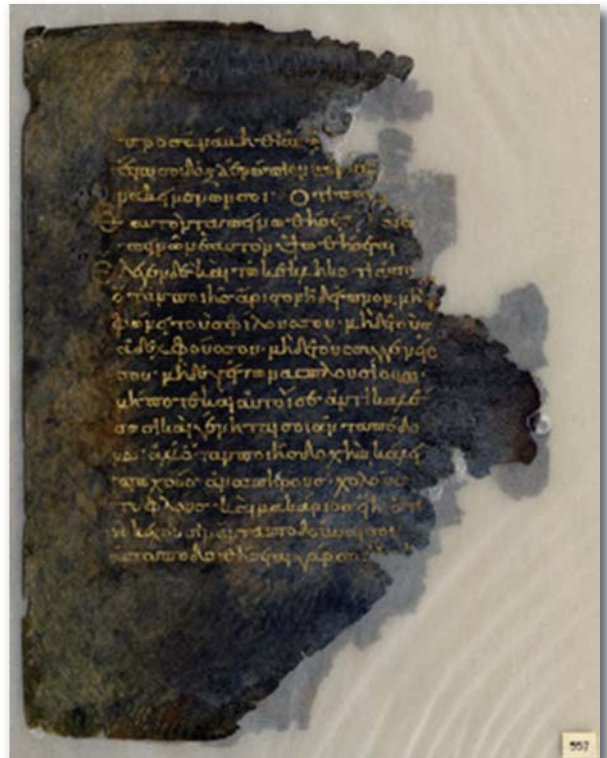 προσανάβηθι ἀ
ἔσται σοι δόξα ἐνώπιον τῶν
μένων σοι· Ὅτι πᾶς
ἑαυτὸν ταπεινωθήσε
πεινῶν ἑαυτὸν ὑψωθήσεται
λεγε δὲ καὶ τῷ κεκληκότι αὐτὸ
ὅταν ποιῇς ἄριστον ἢ δεῖπνον, μὴ
φώνει τοὺς φίλους σου· μηδὲ τοὺς
ἀδελφούς σου· μηδὲ τοὺς συγγενεῖς
σου· μηδὲ γείτονας πλουσίους·
μήποτε καὶ αὐτοί σε ἀντικαλέ
σωσι καὶ γένηταί σοι ἀνταπόδο
μα· ἀλλ' ὅταν ποιῇς δοχὴν κάλει
πτωχοὺς ἀναπήρους· χωλοὺς
τυφλούς· καὶ μακάριος ἔσῃ ὅτι
οὐκ ἔχουσιν ἀνταποδοῦναί σοι
ἀνταποδοθήσεται γάρ σοι
557